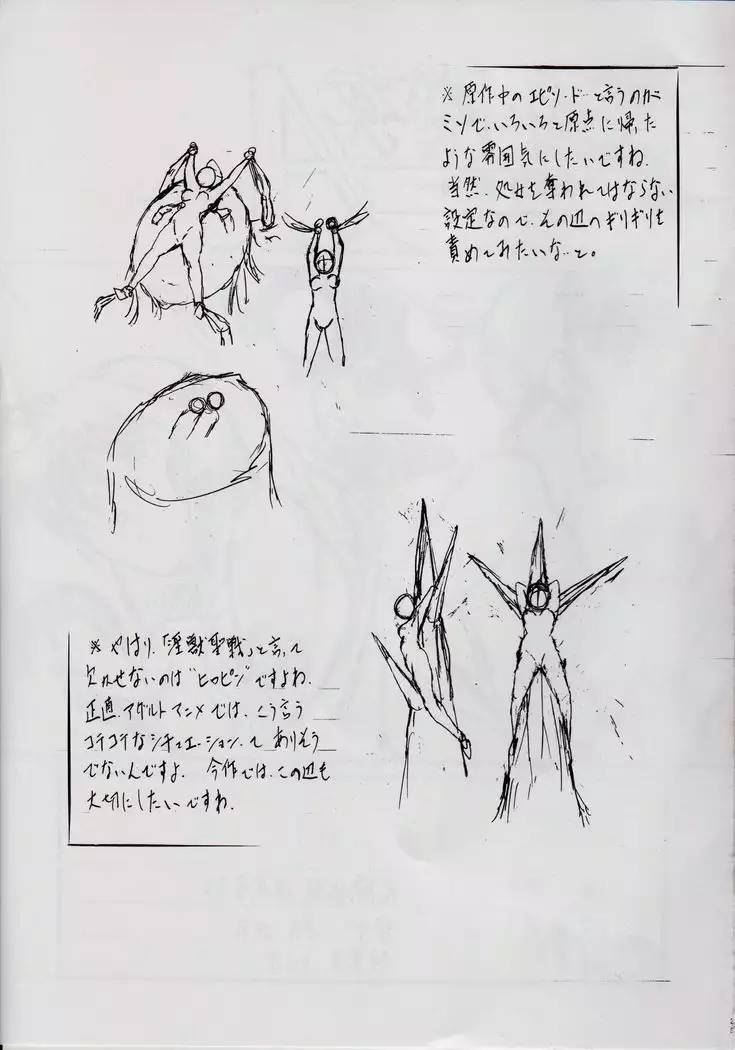 ※ 原作中のエピソードと言うのが
ミソで、いろいろと原点に帰った
ような雰囲気にしたいですね。
当然、処女を奪われてはならない
設定なので、その辺へギリギリを
責めてみたいなと。
※ やはり、「淫獣聖戦」と言って
欠かせないのは“ヒロピン”ですよね。
正直、アダルトアニメでは、こう言う
コテコテなシチュエーションってありそう
でないんですよ。今作では、この辺も
大切にしたいですね。